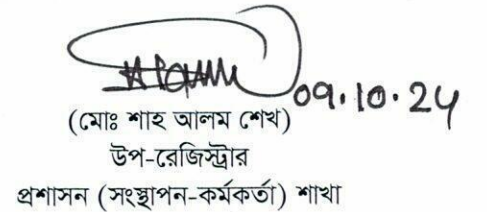 09.10.24
(মোঃ শাহ আলম শেখ)
উপ-রেজিস্ট্রার
প্রশাসন (সংস্থাপন-কর্মকর্তা) শাখা